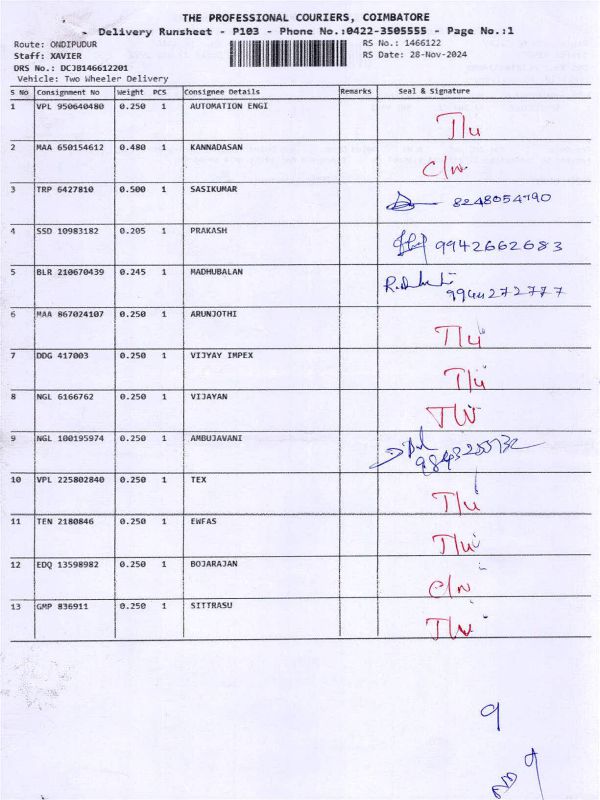 THE PROFESSIONAL COURIERS, COIMBATORE
Delivery Runsheet - P103 - Phone No.:0422-3505555 - Page No.:1
Route: ONDIPUDUR RS No.: 1466122
Staff: XAVIER RS Date: 28-Nov-2024
DRS No.: DCJB146612201
Vehicle: Two Wheeler Delivery
S No Consignment No Weight PCS Consignee Details Remarks Seal & Signature
1 VPL 950640480 0.250 1 AUTOMATION ENGI
2 MAA 650154612 0.480 1 KANNADASAN
3 TRP 6427810 0.500 1 SASIKUMAR 8248054790
4 SSD 10983182 0.205 1 PRAKASH 9942662683
5 BLR 210670439 0.245 1 MADHUBALAN 9944272777
6 MAA 867024107 0.250 1 ARUNJOTHI
7 DDG 417003 0.250 1 VIJYAY IMPEX
8 NGL 6166762 0.250 1 VIJAYAN
9 NGL 100195974 0.250 1 AMBUJAVANI
10 VPL 225802840 0.250 1 TEX
11 TEN 2180846 0.250 1 EWFAS
12 EDQ 13598982 0.250 1 BOJARAJAN
13 GMP 836911 0.250 1 SITTRASU
9
9